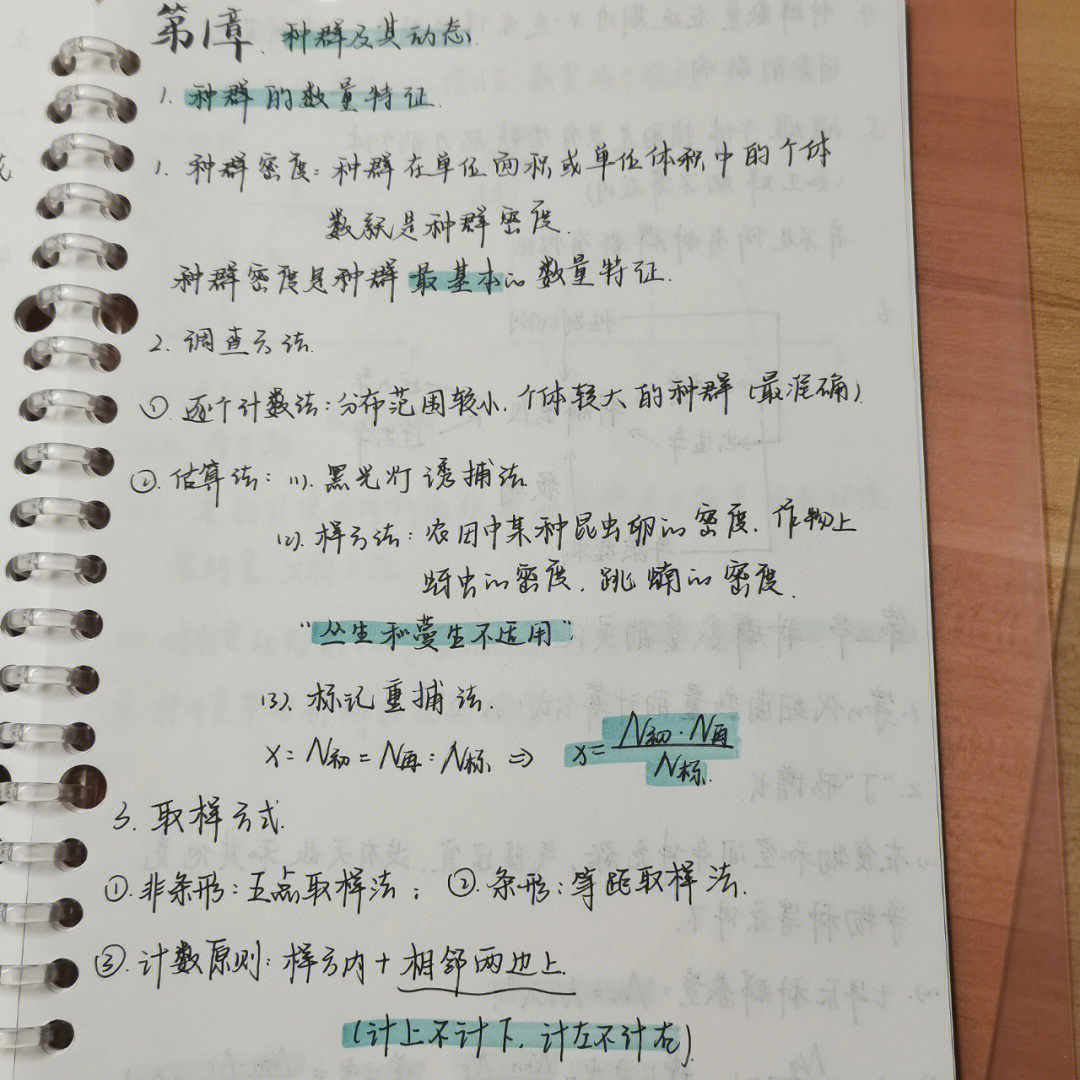 第1章. 种群及其动态.
1. 种群的数量特征.
1. 种群密度: 种群在单位面积或单位体积中的个体
数就是种群密度.
种群密度是种群最基本的数量特征.
2. 调查方法.
①. 逐个计数法: 分布范围较小, 个体较大的种群 (最准确).
②. 估算法: (1). 黑光灯诱捕法.
(2). 样方法: 农田中某种昆虫卵的密度. 作物上
蚜虫的密度. 跳蝻的密度.
"丛生和蔓生不适用".
(3). 标记重捕法.
x = N初 = N再 : N标 ⇒ x = N初·N再 / N标.
3. 取样方式.
①. 非条形: 五点取样法; ②. 条形: 等距取样法.
③. 计数原则: 样方内 + 相邻两边上.
(计上不计下, 计左不计右).